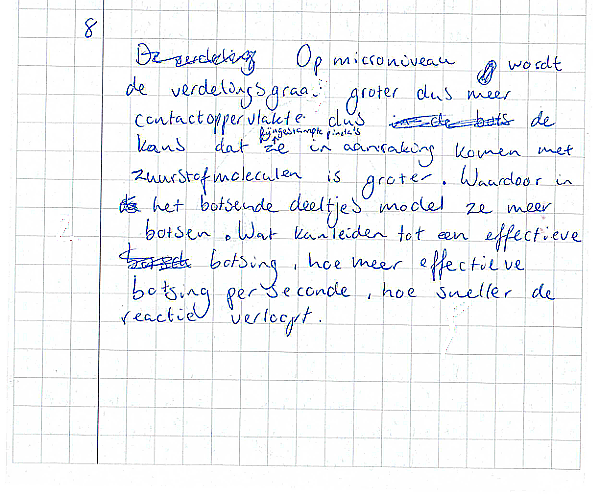 8
De verdeling Op microniveau wordt
de verdelingsgraad groter dus meer
contactoppervlakte dus in de bots de
fijngestampte pinda's
kans dat ze in aanraking komen met
zuurstofmoleculen is groter. Waardoor in
het botsende deeltjes model ze meer
botsen. Wat kan leiden tot een effectieve
botsing, hoe meer effectieve
botsing per seconde, hoe sneller de
reactie verloopt.